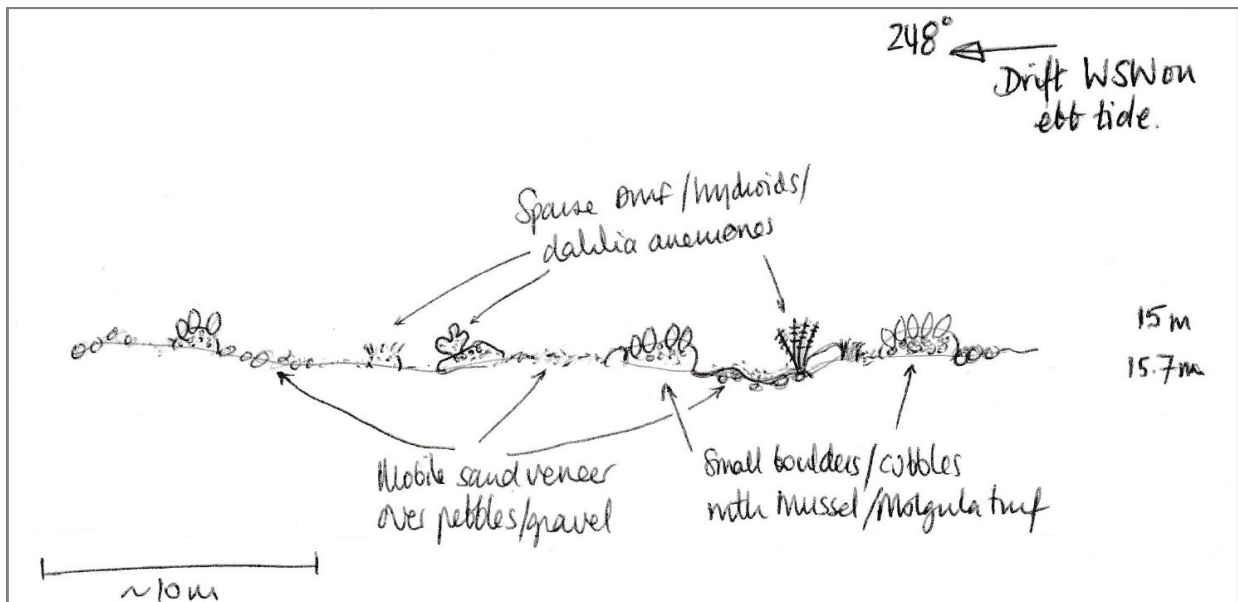 248°
Drift WSW on
ebb tide.
Sparse turf/hydroids/
dahlia anemones
15 m
15.7m
Mobile sand veneer
over pebbles/gravel
Small boulders/cobbles
with Mussel/Molgula turf
~10m